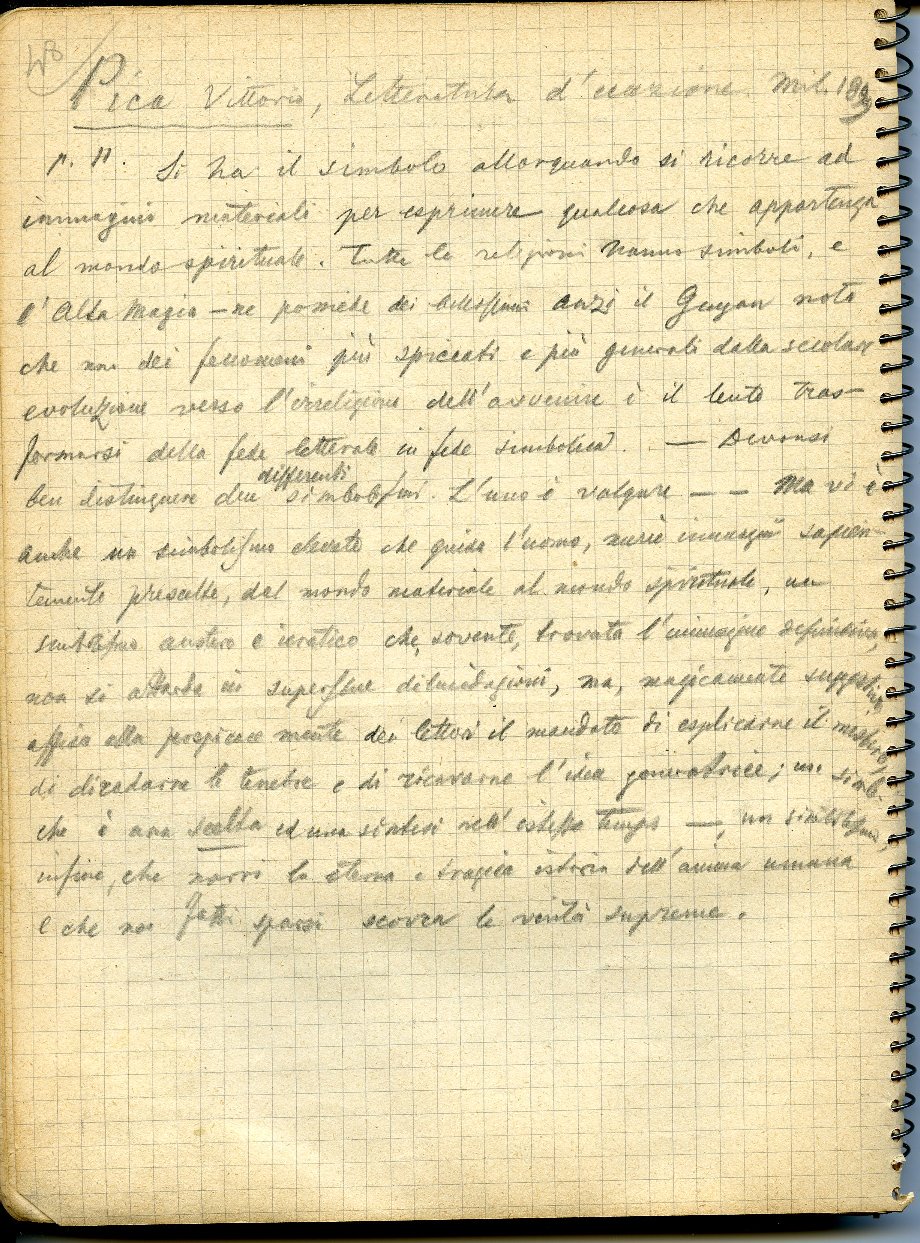 48
Pica Vittorio, Letteratura d'eccezione. Mil. 1899
p. 11. Si ha il simbolo allorquando si ricorre ad
immagini materiali per esprimere qualcosa che appartenga
al mondo spirituale. Tutte le religioni hanno simboli, e
l'Alta Magia – ne possiede dei bellissimi anzi il Guyau nota
che uno dei fenomeni più spiccati e più generali della secolar
evoluzione verso l'irreligione dell'avvenire è il lento tras-
formarsi della fede letterale in fede simbolica. — Devonsi
ben distinguere due differenti simbolismi. L'uno è volgare — — Ma vi è
anche un simbolismo elevato che guida l'uomo, mercè immagini sapien-
temente prescelte, dal mondo materiale al mondo spirituale, un
simbolismo austero e ieratico che, sovente, trovata l'immagine definitiva,
non si attarda in superflue dilucidazioni, ma, magicamente suggestivo,
affida alla perspicace mente dei lettori il mandato di esplicarne il mistero,
di diradarne le tenebre e di ricavarne l'idea generatrice; un simb-
che è una scelta ed una sintesi nell'istesso tempo —, un simbolismo,
infine, che narri la eterna e tragica istoria dell'anima umana
e che nei fatti sparsi scovra le verità supreme.